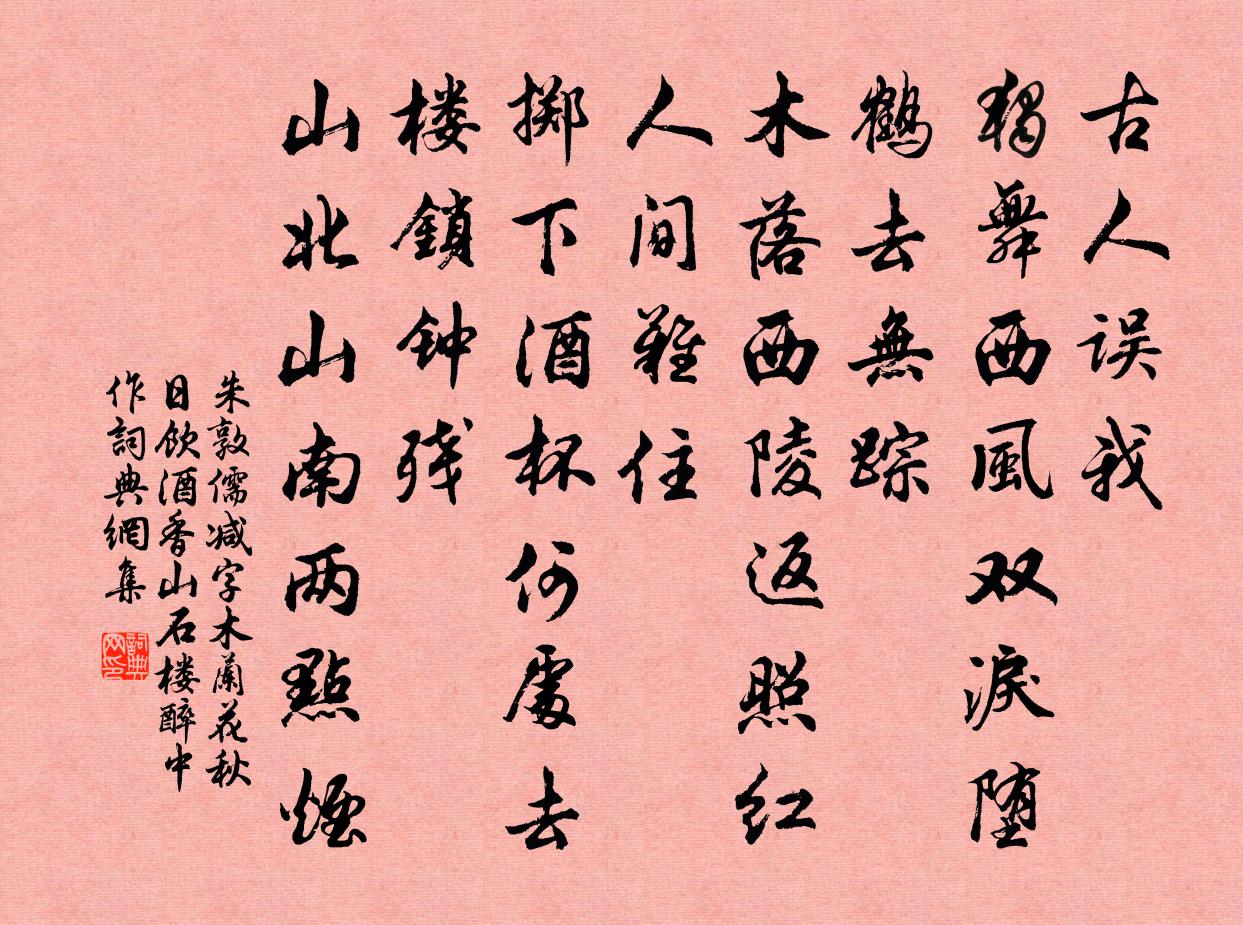 古人误我
独舞西風双淚堕
鶴去無踪
木落西陵返照红
人间難住
掷下酒杯何處去
楼鎖钟残
山北山南两點煙
朱敦儒减字木蘭花秋
日飲酒香山石楼醉中
作詞典網集
詞典
网印